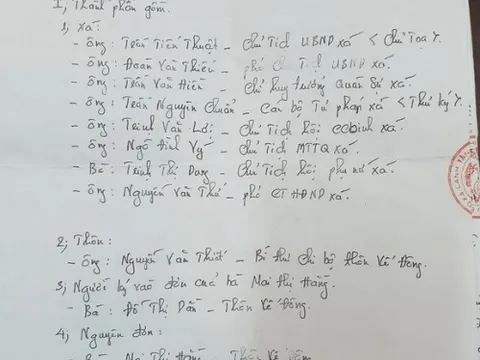 I, Thành phần gồm.
1, Xã:
- Ông: Trần Tiến Thuật - Chủ Tịch UBND xã < Chủ Tọa ).
- Ông: Đoàn Văn Thiều - phó Chủ Tịch UBND xã.
- Ông: Trần Văn Hiến - Chỉ huy trưởng Quân Sự xã.
- Ông: Trần Nguyên Chuẩn - Cán bộ Tư Pháp xã < Thư ký ).
- Ông: Trịnh Văn Lợi - Chủ Tịch hội CCbinh xã.
- Ông: Ngô Đình Vỹ - Chủ Tịch MTTQ xã.
- Bà: Trịnh Thị Dong - Chủ Tịch hội phụ nữ xã.
- Ông: Nguyễn Văn Thứ - phó CT HĐND xã.
2; Thôn:
- Ông: Nguyễn Văn Thiết - Bí thư Chi bộ thôn Kẽ Đồng.
3; Người ký vào đơn của bà Mai Thị Hằng.
- Bà: Đỗ Thị Dần - Thôn Kẽ Đồng.
4; Nguyên đơn:
- Bà: Mai Thị Hằng - Thôn Kẽ